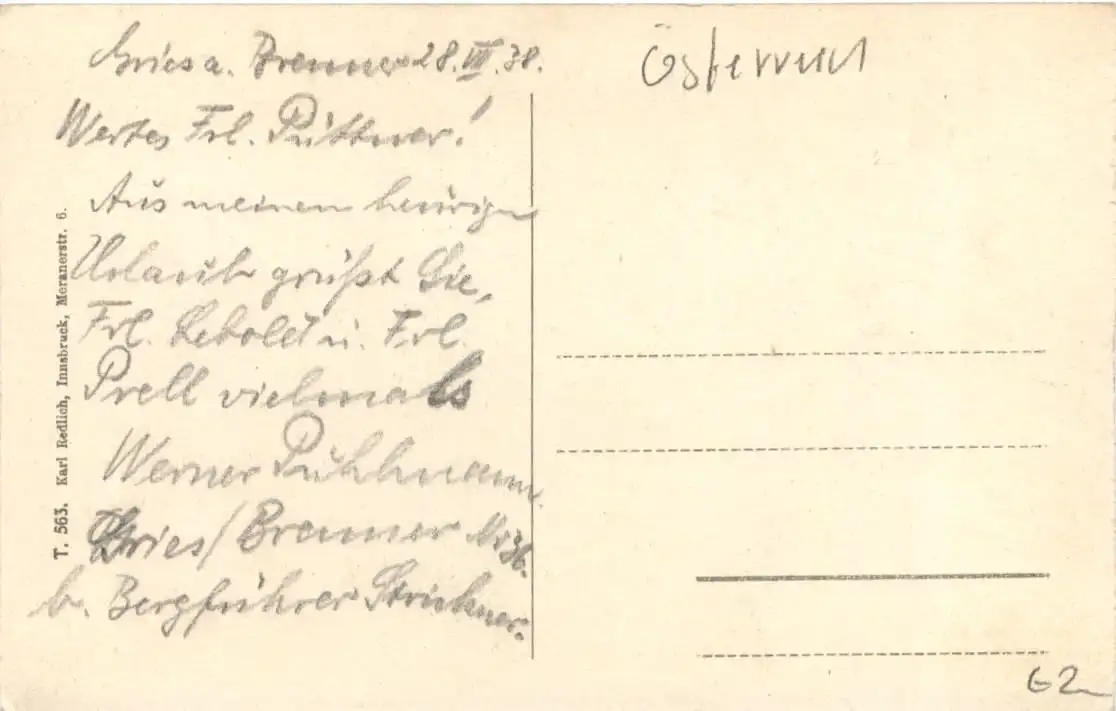 Gries a. Brenner 28.VII.38.
Wertes Frl. Püttner!
Aus meinem heurigen
Urlaub grüßt Sie,
Frl. Lebold u. Frl.
Prell vielmals
Werner Pühlmann
Gries/Brenner Nr 36.
b. Bergführer Strickner.
T. 563. Karl Redlich, Innsbruck, Meranerstr. 6.
Österreich